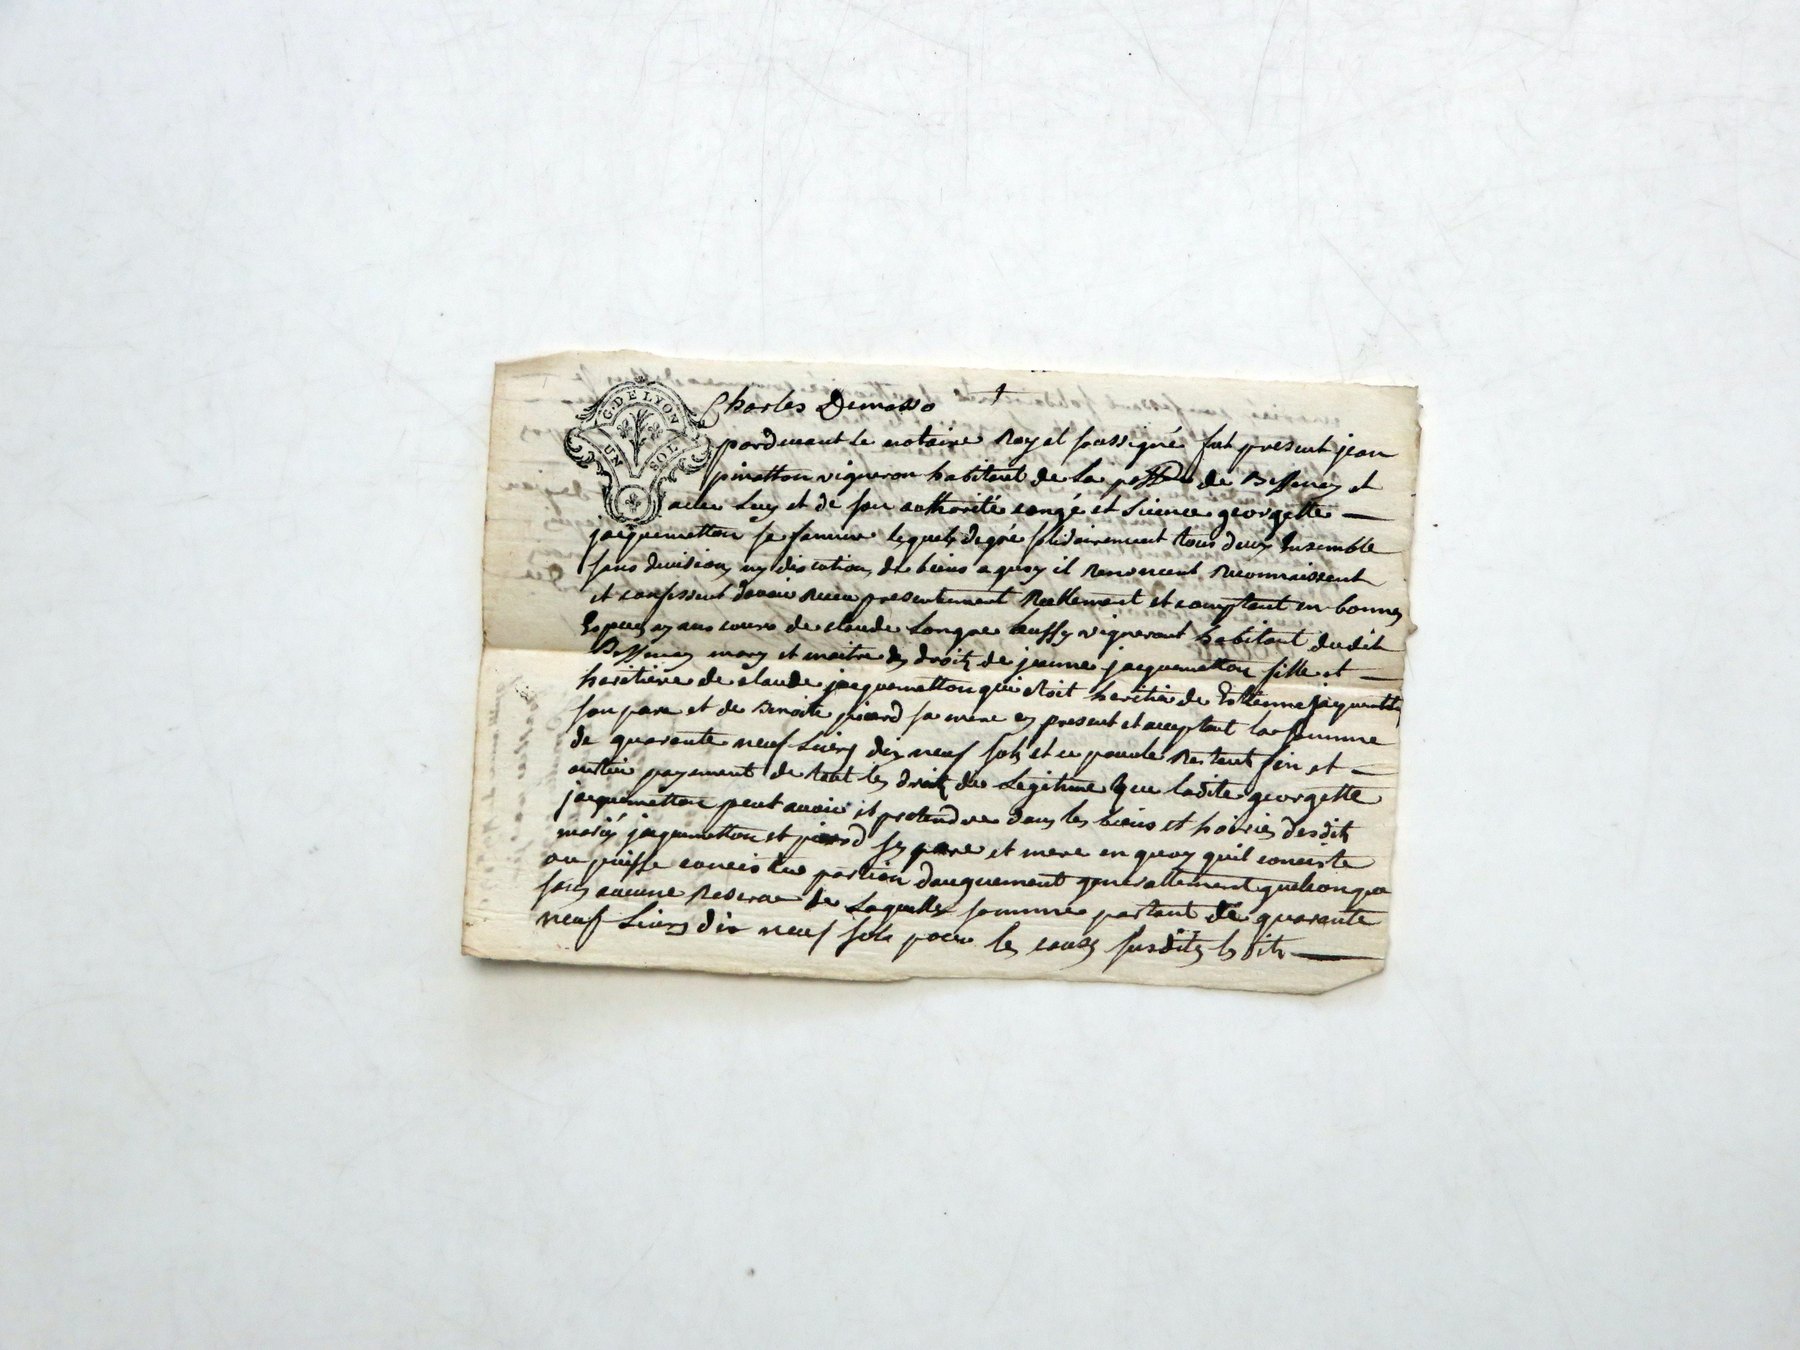 G. DE LYON
UN SOL
Charles Demasso
pardevant le notaire Royal soussigné fut present jean
pinatton vigneron habitant de la de Bessenay et
avec luy et de son authorité congé et licence georgette
jacquemetton sa femme lequels degré solidairement tous deux Ensemble
sans division ny discution de biens a quoy il Renoncent Reconnaissent
et confessent davoir Receu presentement Reellement et comptant en bonnes
Especes ayans cours de claude Longue vigneront habitant dudit
Bessenay mary et maitre des droits de jeanne jacquemetton fille et
heritiere de claude jacquemetton qui etoit heritier de Estienne jacquemetton
son pere et de Benoite picard sa mere cy present et acceptant la somme
de quarante neuf Livres dix neuf sols et ce pour le Restent fin et
entier payement de tout les droits de Legitime que ladite georgette
jacquemetton peut avoir et pretendre dans les biens et hoiries desdits
mariés jacquemetton et picard ses pere et mere en quoy quil conciste
ou puisse concister portion daugument generallement quelconque
sans aucune Reserve de Laquelle somme partant de quarante
neuf Livres dix neuf sols pour les causes susdites lesdits